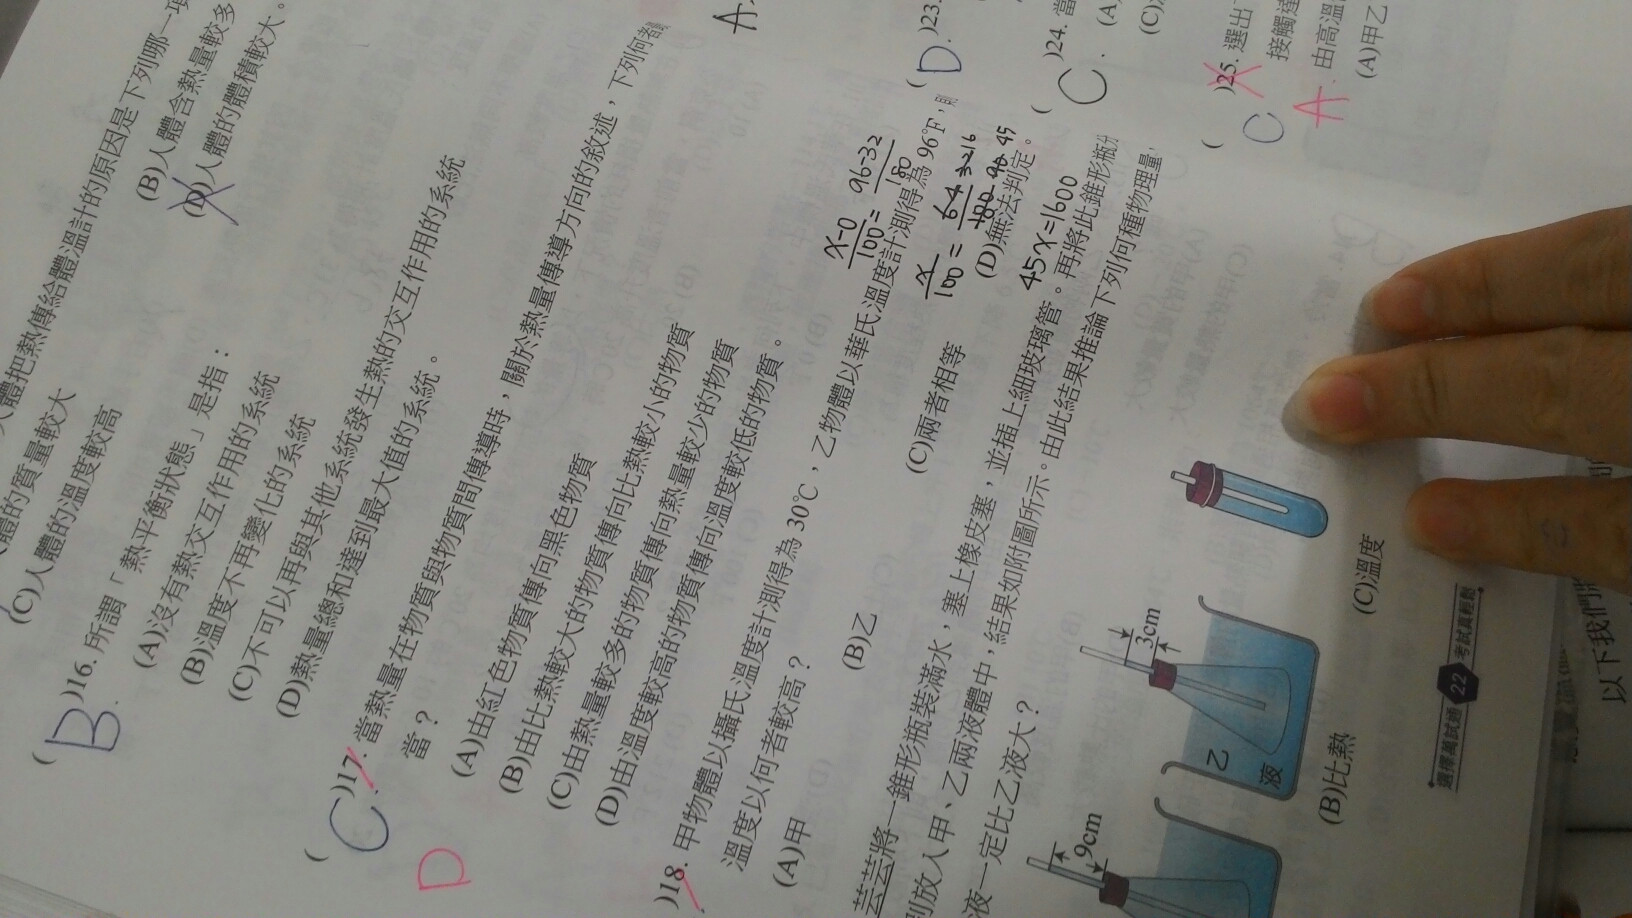 人體把熱傳給體溫計的原因是下列哪一項
體的質量較大
(B)人體含熱量較多
(C)人體的溫度較高
(D)人體的體積較大。
( B )16. 所謂「熱平衡狀態」是指：
(A)沒有熱交互作用的系統
(B)溫度不再變化的系統
(C)不可以再與其他系統發生熱的交互作用的系統
(D)熱量總和達到最大值的系統。
( C )17. 當熱量在物質與物質間傳導時，關於熱量傳導方向的敘述，下列何者
D
當？
(A)由紅色物質傳向黑色物質
(B)由比熱較大的物質傳向比熱較小的物質
(C)由熱量較多的物質傳向熱量較少的物質
(D)由溫度較高的物質傳向溫度較低的物質。
)18. 甲物體以攝氏溫度計測得為30℃，乙物體以華氏溫度計測得為96℉，
溫度以何者較高？
(A)甲
(B)乙
(C)兩者相等
(D)無法判定。
x-0/100 = 96-32/180
x/100 = 64/180
32 16
90 45
45x=1600
芸芸將一錐形瓶裝滿水，塞上橡皮塞，並插上細玻璃管。再將此錐形瓶分
別放入甲、乙兩液體中，結果如附圖所示。由此結果推論下列何種物理量，
液一定比乙液大？
9cm
3cm
乙
液
(B)比熱
(C)溫度
選擇萬試通 22 考試真輕鬆
A
( D )23.
( C )24. 當
(A)
(C)
( C )25. 選出
A
接觸達
由高溫
(A)甲乙
以下我們